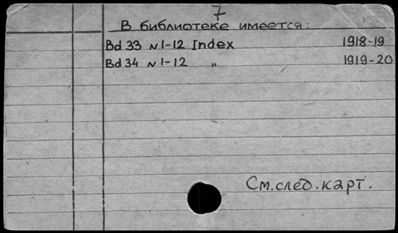 7
В библиотеке имеется:
Bd 33 N 1-12 Index 1918-19
Bd 34 N 1-12 „ 1919-20
См. след. карт.